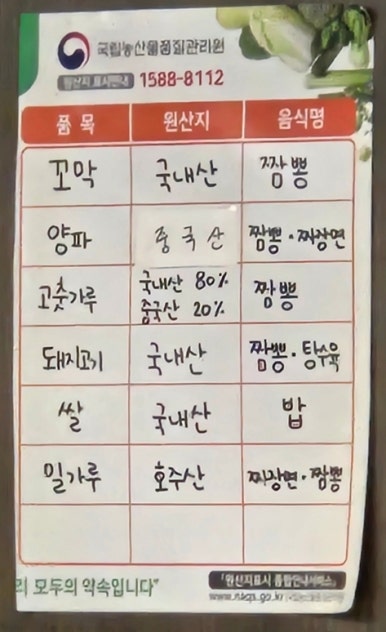 국립농산물품질관리원
원산지 표시안내 1588-8112
품 목 원산지 음식명
꼬막 국내산 짬뽕
양파 중국산 짬뽕·짜장면
고춧가루 국내산 80% 중국산 20% 짬뽕
돼지고기 국내산 짬뽕·탕수육
쌀 국내산 밥
밀가루 호주산 짜장면·짬뽕
리 모두의 약속입니다"
「원산지표시 종합안내서비스」
www.naqs.go.kr